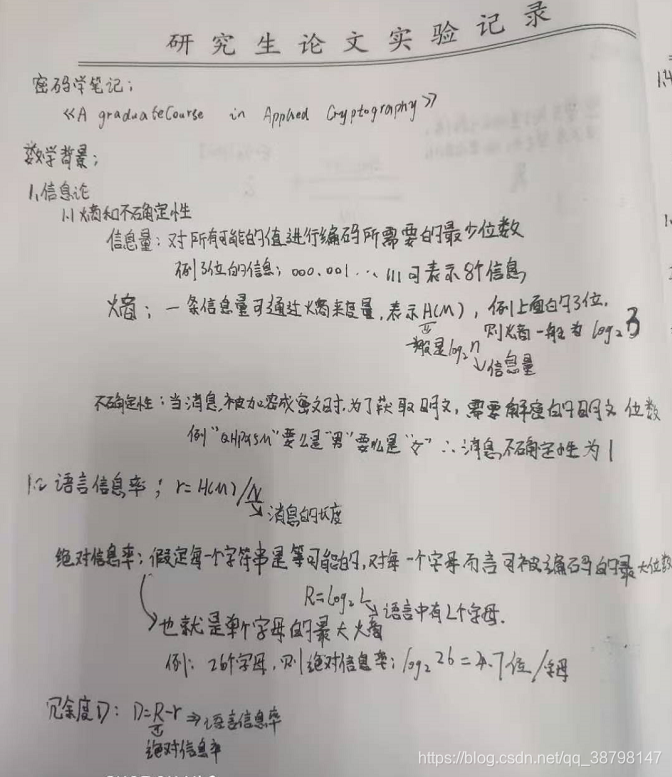 研究生论文实验记录
密码学笔记：
《A graduateCourse in Applied Cryptography》
数学背景：
1.信息论
1.1 熵和不确定性
信息量：对所有可能的值进行编码所需要的最少位数
例3位的信息：000.001…111可表示8个信息
熵：一条信息量可通过熵来度量,表示H(M)，例上面的3位.
则熵一般为log₂3
一般是log₂n
信息量
不确定性：当消息被加密成密文时,为了获取明文，需要解密的明文位数
例"QHP&SM"要么是"男"要么是"女"∴消息不确定性为1
1.2 语言信息率；r=H(M)/N
消息的长度
绝对信息率：假定每一个字符串是等可能的,对每一个字母而言可被编码的最大位数
R=log₂L
语言中有L个字母.
也就是单个字母的最大熵
例：26个字母,则绝对信息率：log₂26=4.7位/字母
冗余度D：D=R-r⇒语言信息率
绝对信息率
https://blog.csdn.net/qq_38798147